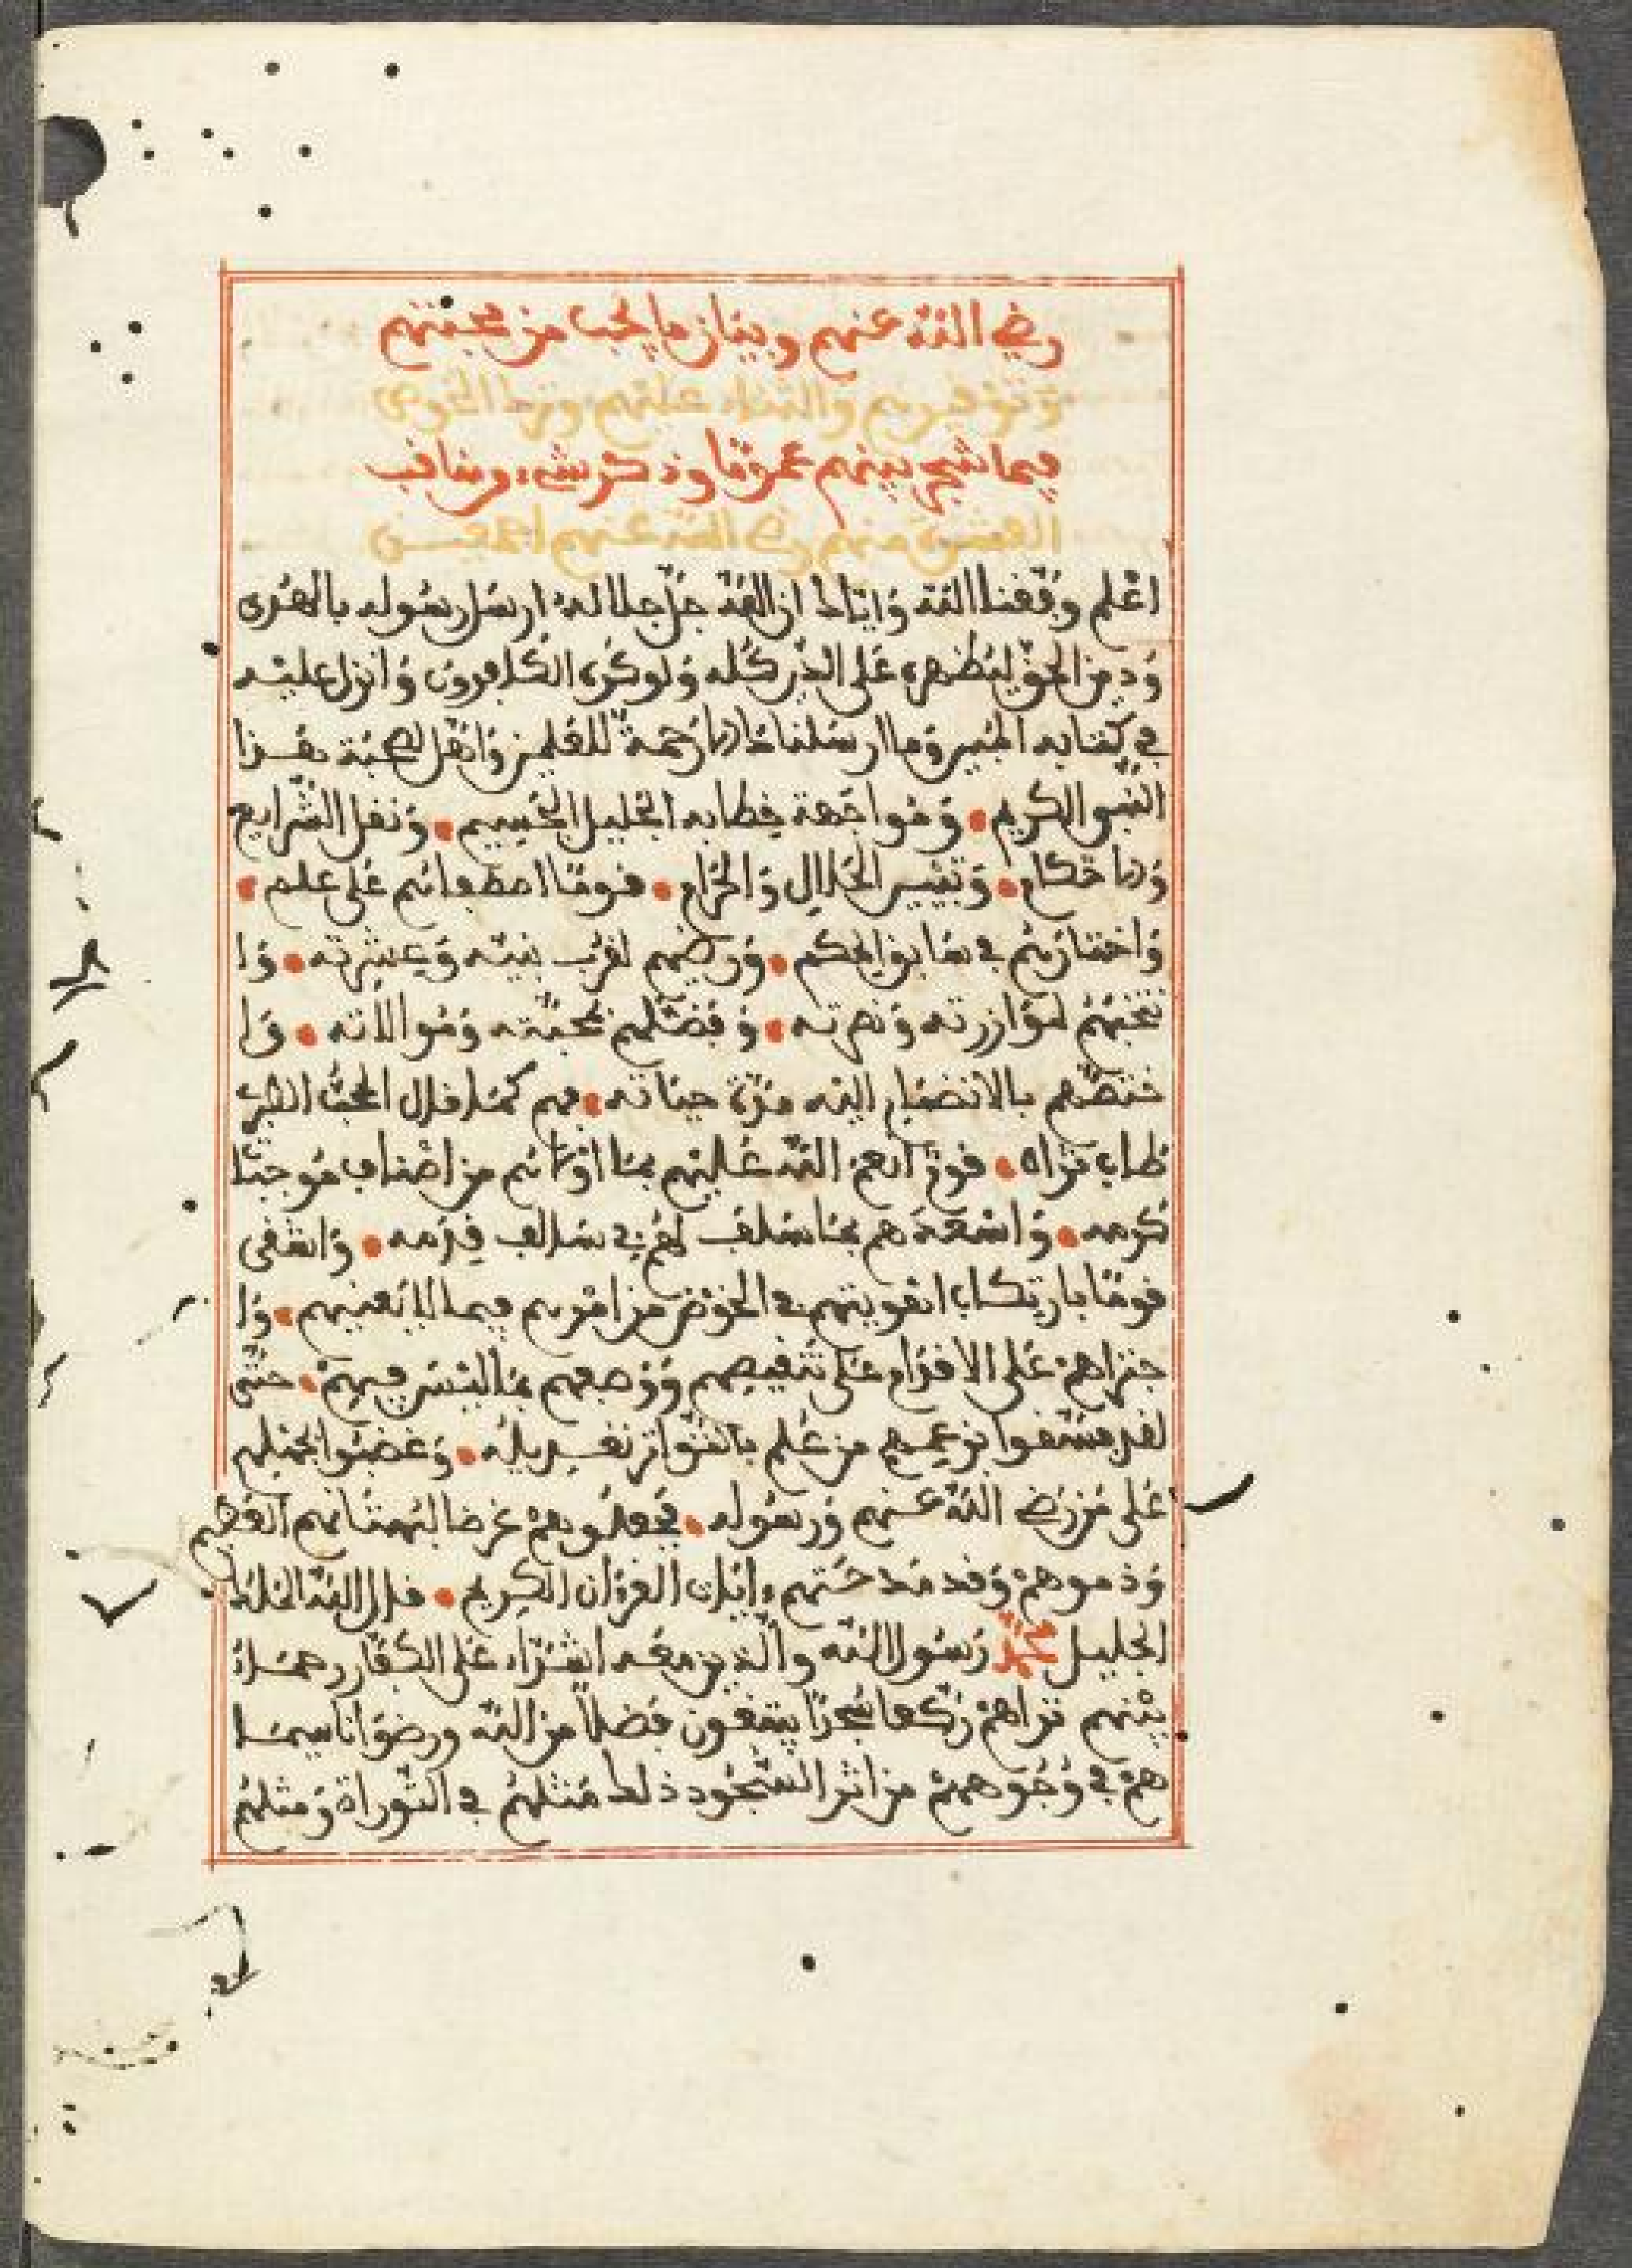 رضي الله عنهم وبيان ما يجب من محبتهم
وتوقيرهم والثناء عليهم وترك الخوض
فيما شجر بينهم عموما وذكر شيء من مناقب
العشرة منهم رضي الله عنهم اجمعين
اعلم وفقنا الله واياك ان الله جل جلاله ارسل رسوله بالهدى
ودين الحق ليظهره على الدين كله ولو كره الكافرون وانزل عليه
في كتابه المبين وما ارسلناك الا رحمة للعلمين وانتخل لصحبة هذا
النبي الكريم • ومواجهة خطابه الجليل الجسيم • ونقل الشرايع
والاحكام • وتبيين الحلال والحرام • قوما اصطفاهم على علم •
واختارهم في سابق الحكم • ورضيهم لقرب بيته وعشرته • وا
نتخبهم لموازرته ونصرته • وفضلهم بمحبته وموالاته • وا
ختصهم بالانضياف اليه مدة حياته • فهم كما قال المحب الطبري
طاب ثراه • قوم انعم الله عليهم بما اولاهم من اصناف موجبات
كرمه • واسعدهم بما سلف لهم في سالف قدمه • واشقى
قوما بارتكاب اهويتهم في الخوض من امرهم فيما لا يعنيهم • وا
جتراهم على الاقدام على تنقيصهم ووصفهم بما ليس فيهم • حتى
لقد فسقوا بزعمهم من علم بالتواتر تعديله • وغضبوا بجهلهم
على من رضي الله عنهم ورسوله • فجعلوهم غرضا لبهتانهم العظيم
وذموهم وقد مدحتهم ءايات القرءان الكريم • قال الله الملك
الجليل محمد رسول الله والذين معه اشداء على الكفار رحماء
بينهم تراهم ركعا سجدا يبتغون فضلا من الله ورضوانا سيما
هم في وجوههم من اثر السجود ذلك مثلهم في التوراة ومثلهم